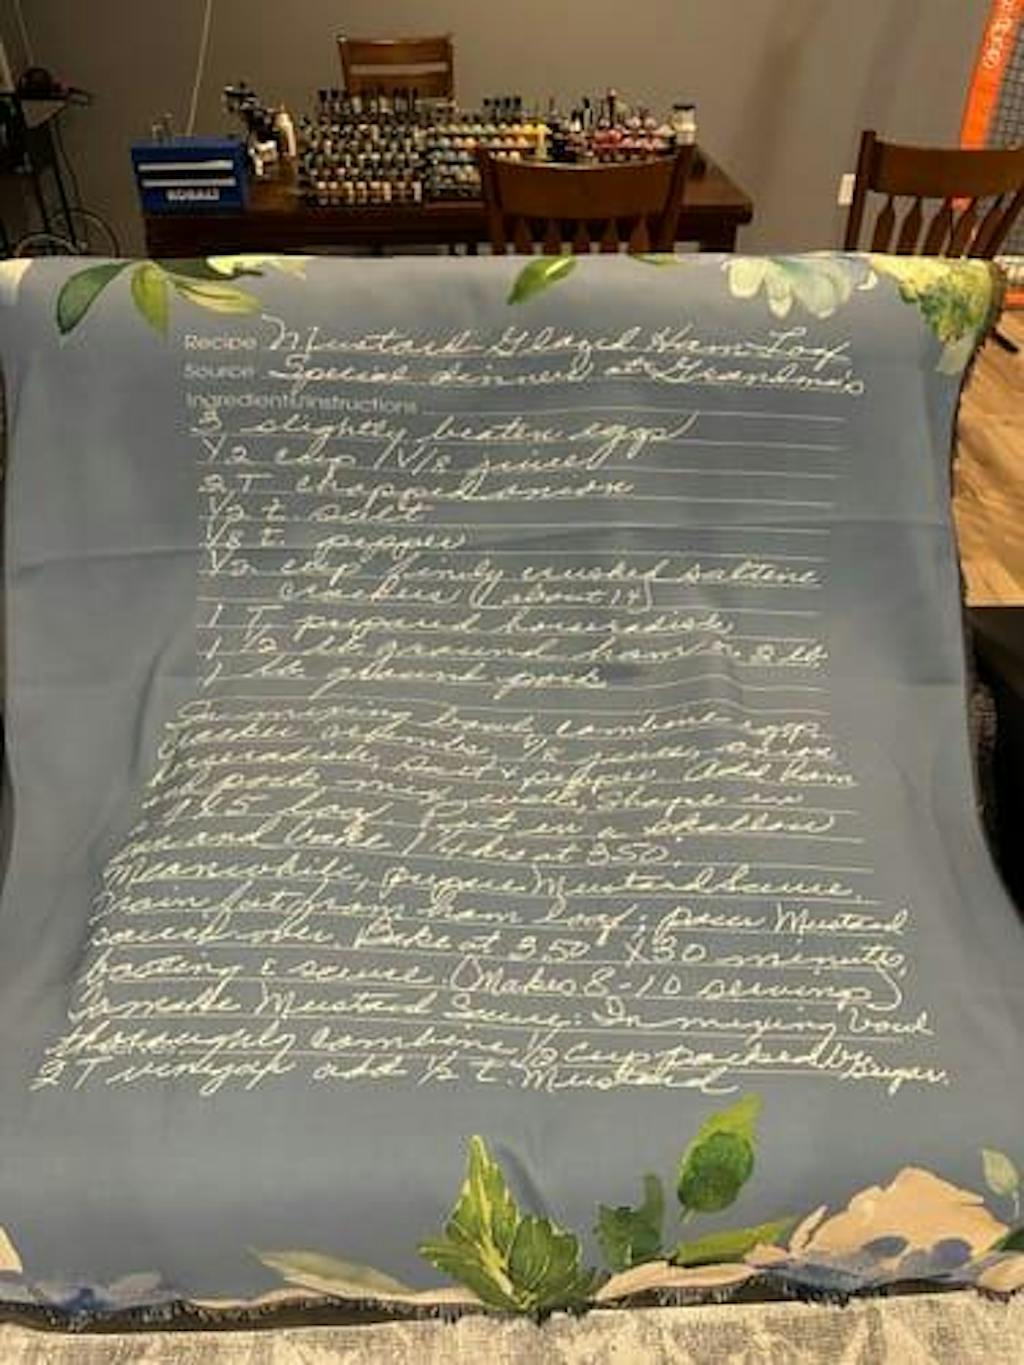 KOBALT
Recipe Mustard Glazed Ham Loaf
Source Special dinners at Grandma's
Ingredients/Instructions
3 slightly beaten eggs
1/2 cup V/8 juice
2 T chopped onion
1/2 t salt
1/8 t. pepper
1/2 cup finely crushed saltine
crackers (about 14)
1 T. prepared horseradish
1 1/2 lb ground ham 2 lb.
1 lb. ground pork
In mixing bowl, combine eggs,
cracker crumbs, V/8 juice, onion,
horseradish, salt & pepper. Add ham
& pork mix well. Shape in
loaf. Put in a shallow
pan and bake 1 1/4 hrs at 350.
Meanwhile, prepare Mustard Sauce.
Drain fat from ham loaf; pour Mustard
sauce over. Bake at 350 X 30 minutes,
basting c sauce. (Makes 8-10 servings)
To make Mustard Sauce: In mixing bowl
thoroughly combine 1/2 cup packed br. sugar.
2 T vinegar add 1/2 t. Mustard